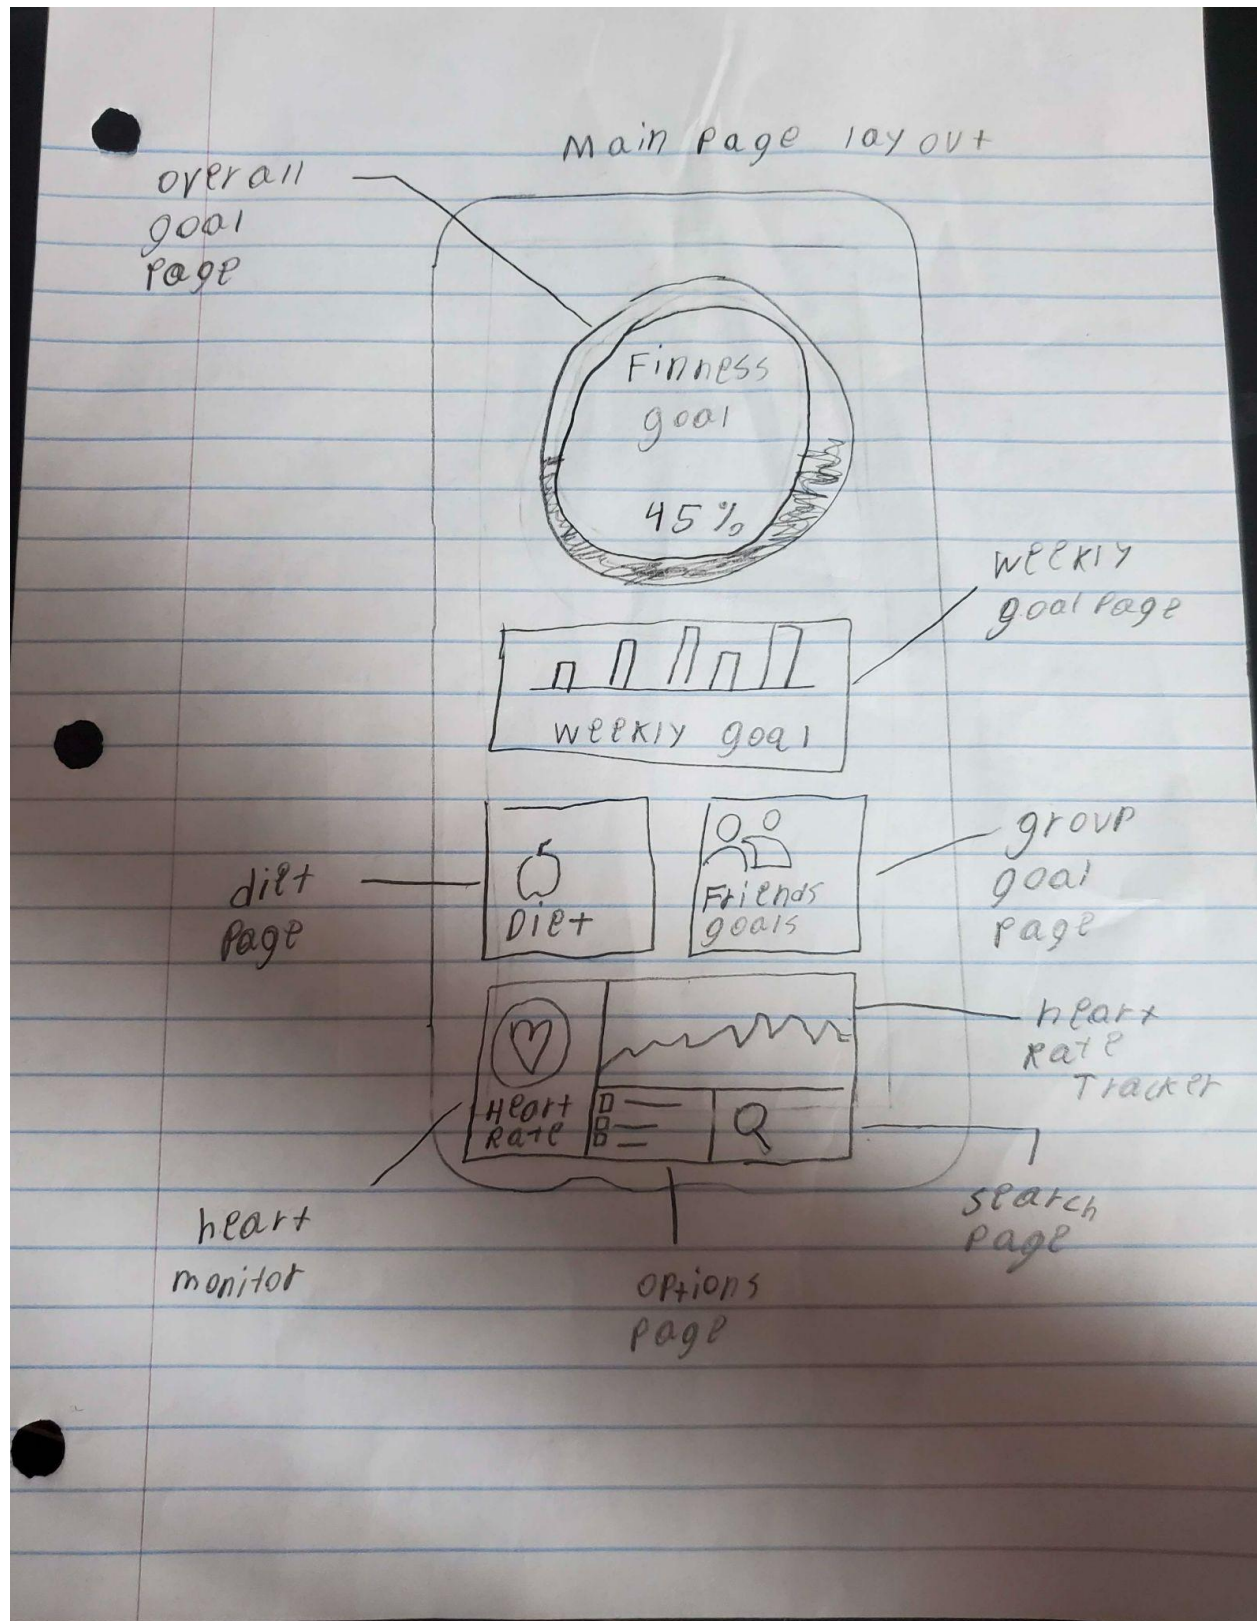 Main Page layout
overall
goal
Page
Finness
goal
45%
weekly
goal Page
weekly goal
diet
Page
Diet
Friends
goals
group
goal
page
Heart
Rate
heart
Rate
Tracker
heart
monitor
options
page
search
page